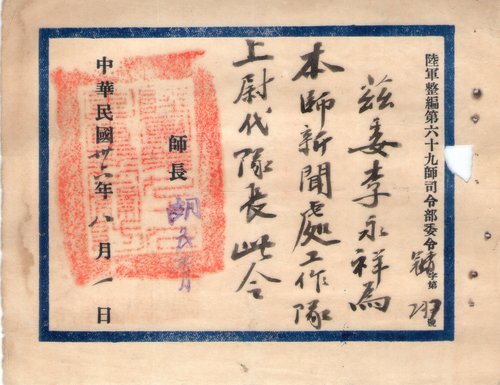 陸軍整編第六十九師司令部委令 字第 號
茲委李永祥為
本師新聞處工作隊
上尉代隊長此令
師長
中華民國卅六年八月一日